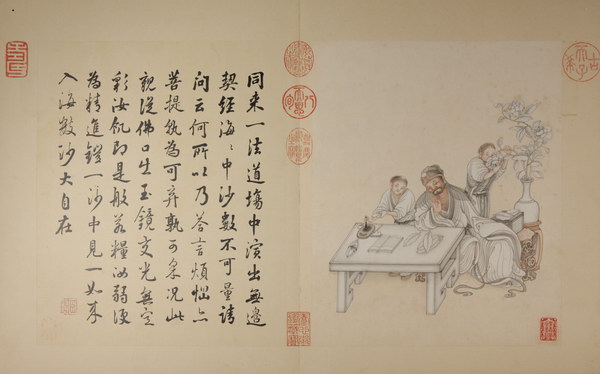 同來一法道場中演出無邊
契經海〻中沙數不可量請
問云何所以乃答言煩惱亦
菩提孰為可弃孰可況此
親從佛口生玉鏡交光無定
彩汝飢即是般若糧汝弱便
為精進鎧一沙中見一如來
入海數沙大自在
古希天子